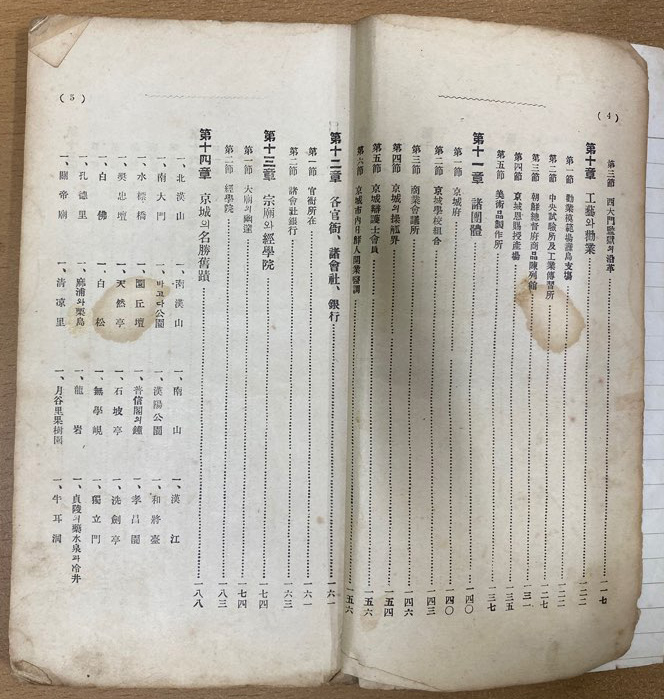 (4)
第三節 西大門監獄의沿革 一一七
第十章 工藝와勸業 一二二
第一節 勸業模範場纛島支場 一二二
第二節 中央試驗所及工業傳習所 一二七
第三節 朝鮮總督府商品陳列館 一三一
第四節 京城恩賜授產場 一三五
第五節 美術品製作所 一三七
第十一章 諸團體 一四〇
第一節 京城府 一四〇
第二節 京城學校組合 一四三
第三節 商業會議所 一四六
第四節 京城의操觚界 一五四
第五節 京城辯護士會員 一五六
第六節 京城市內日鮮人開業醫調 一五六
(5)
第十二章 各官衙、諸會社、銀行 一六一
第一節 官衙所在 一六一
第二節 諸會社銀行 一六三
第十三章 宗廟와經學院 一七四
第一節 大廟의幽邃 一七四
第二節 經學院 一八三
第十四章 京城의名勝舊蹟 一八八
一、北漢山 一、南漢山 一、南山 一、漢江
一、南大門 一、바고다公園 一、漢陽公園 一、和將臺
一、水標橋 一、圜丘壇 一、普信閣의鐘 一、孝昌園
一、奬忠壇 一、天然亭 一、石坡亭 一、洗劍亭
一、白佛 一、白松 一、無學峴 一、獨立門
一、孔德里 一、麻浦와栗島 一、龍岩 一、貞陵의藥水泉과冷井
一、關帝廟 一、淸凉里 一、月谷里果樹園 一、牛耳洞